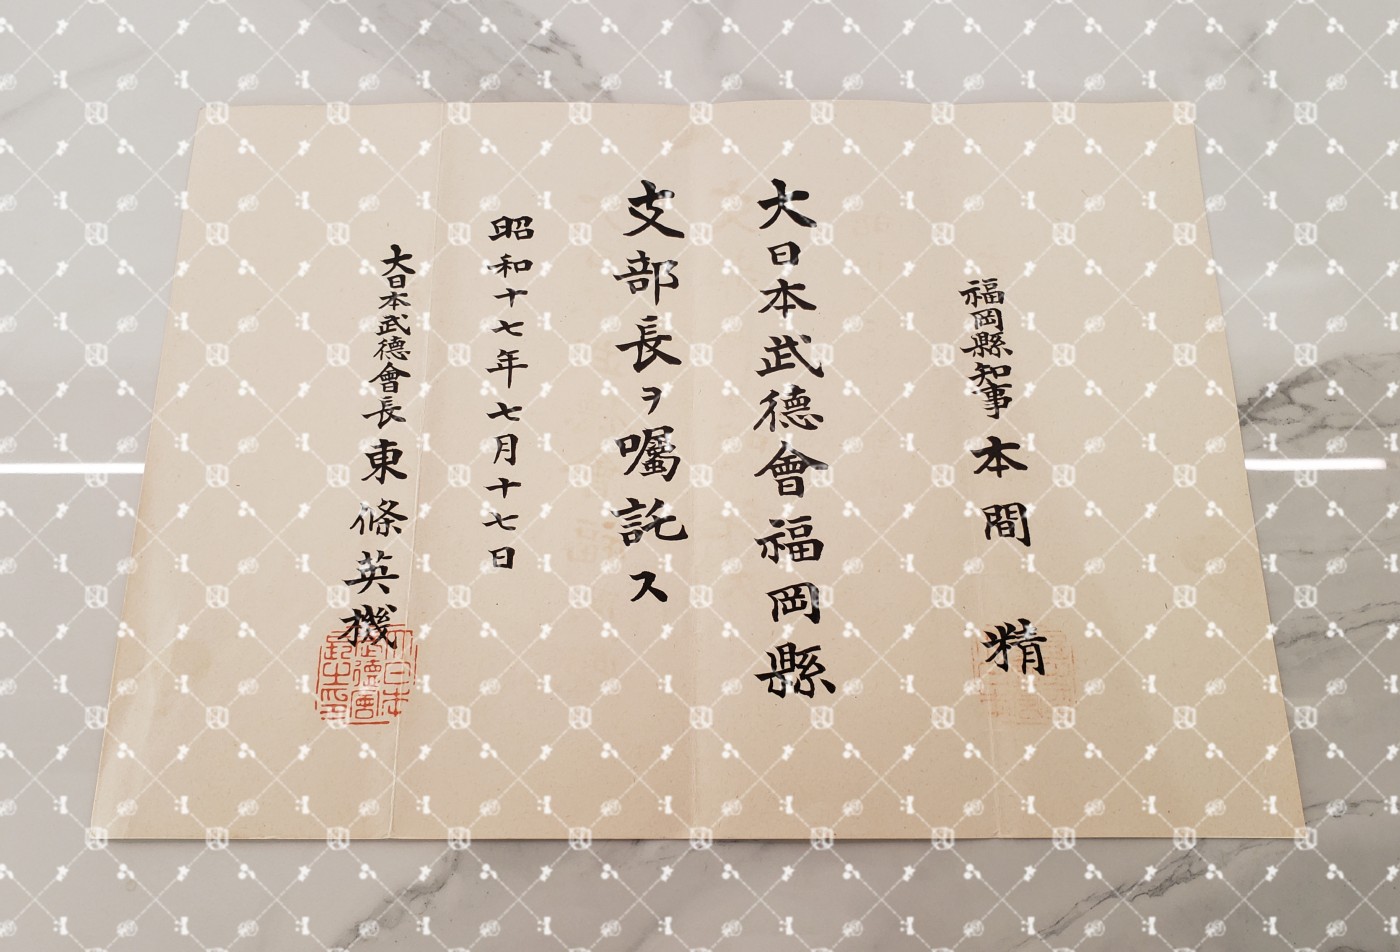 福岡縣知事 本間 精
大日本武德會福岡縣
支部長ヲ囑託ス
昭和十七年七月十七日
大日本武德會長 東條英機
大日本
武德會